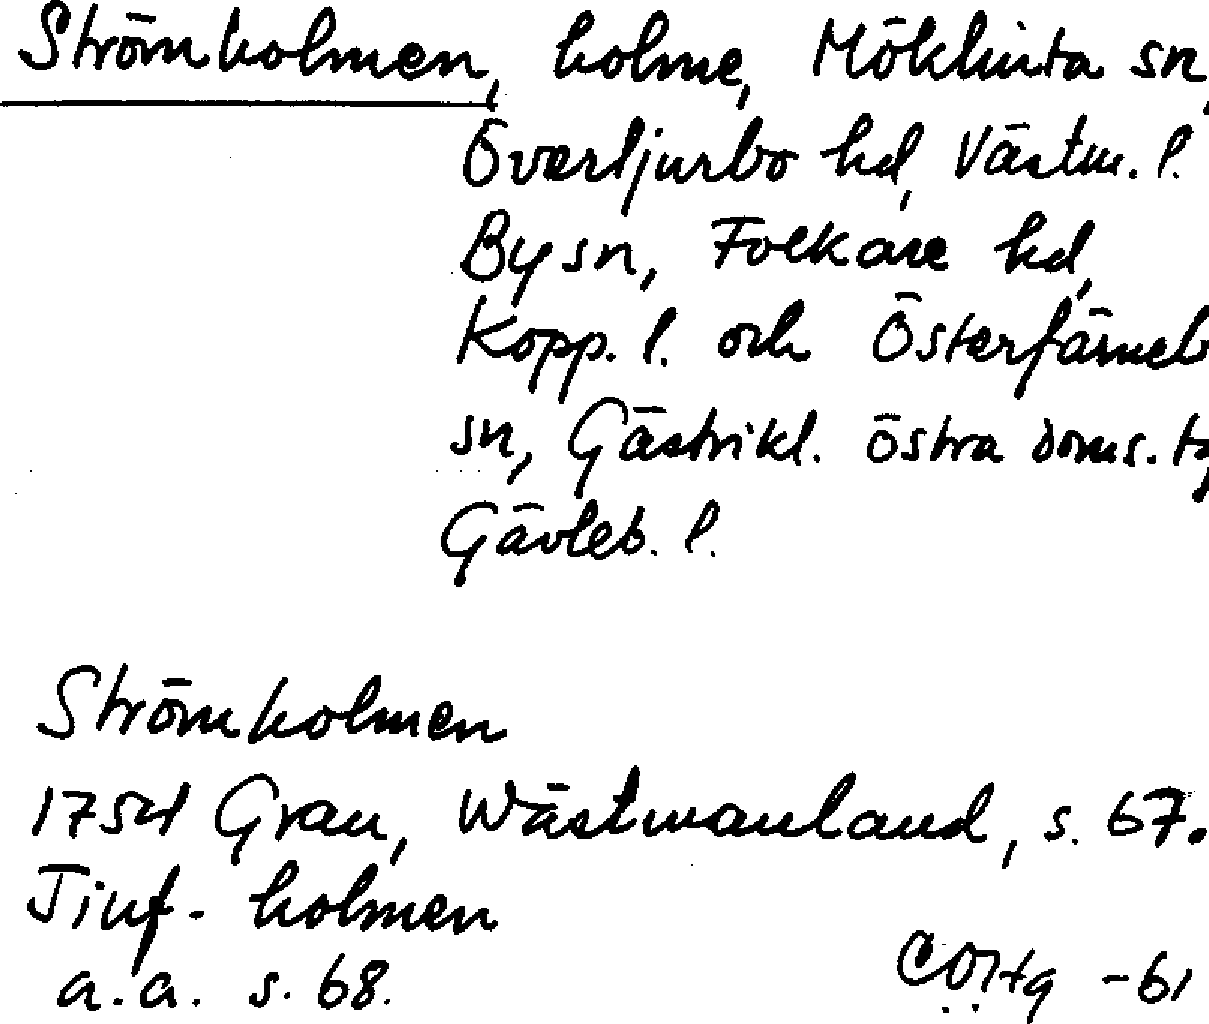 Strömholmen, holme, Möklinta sn,
Övertjurbo hd, Västm. l.
By sn, Folkare hd,
Kopp. l. och Österfärneb
sn, Gästrikl. östra doms. tg
Gävleb. l.
Strömholmen
1754 Grau, Wästmanland, s. 67.
Tjuf-holmen
a.a. s. 68.
-61